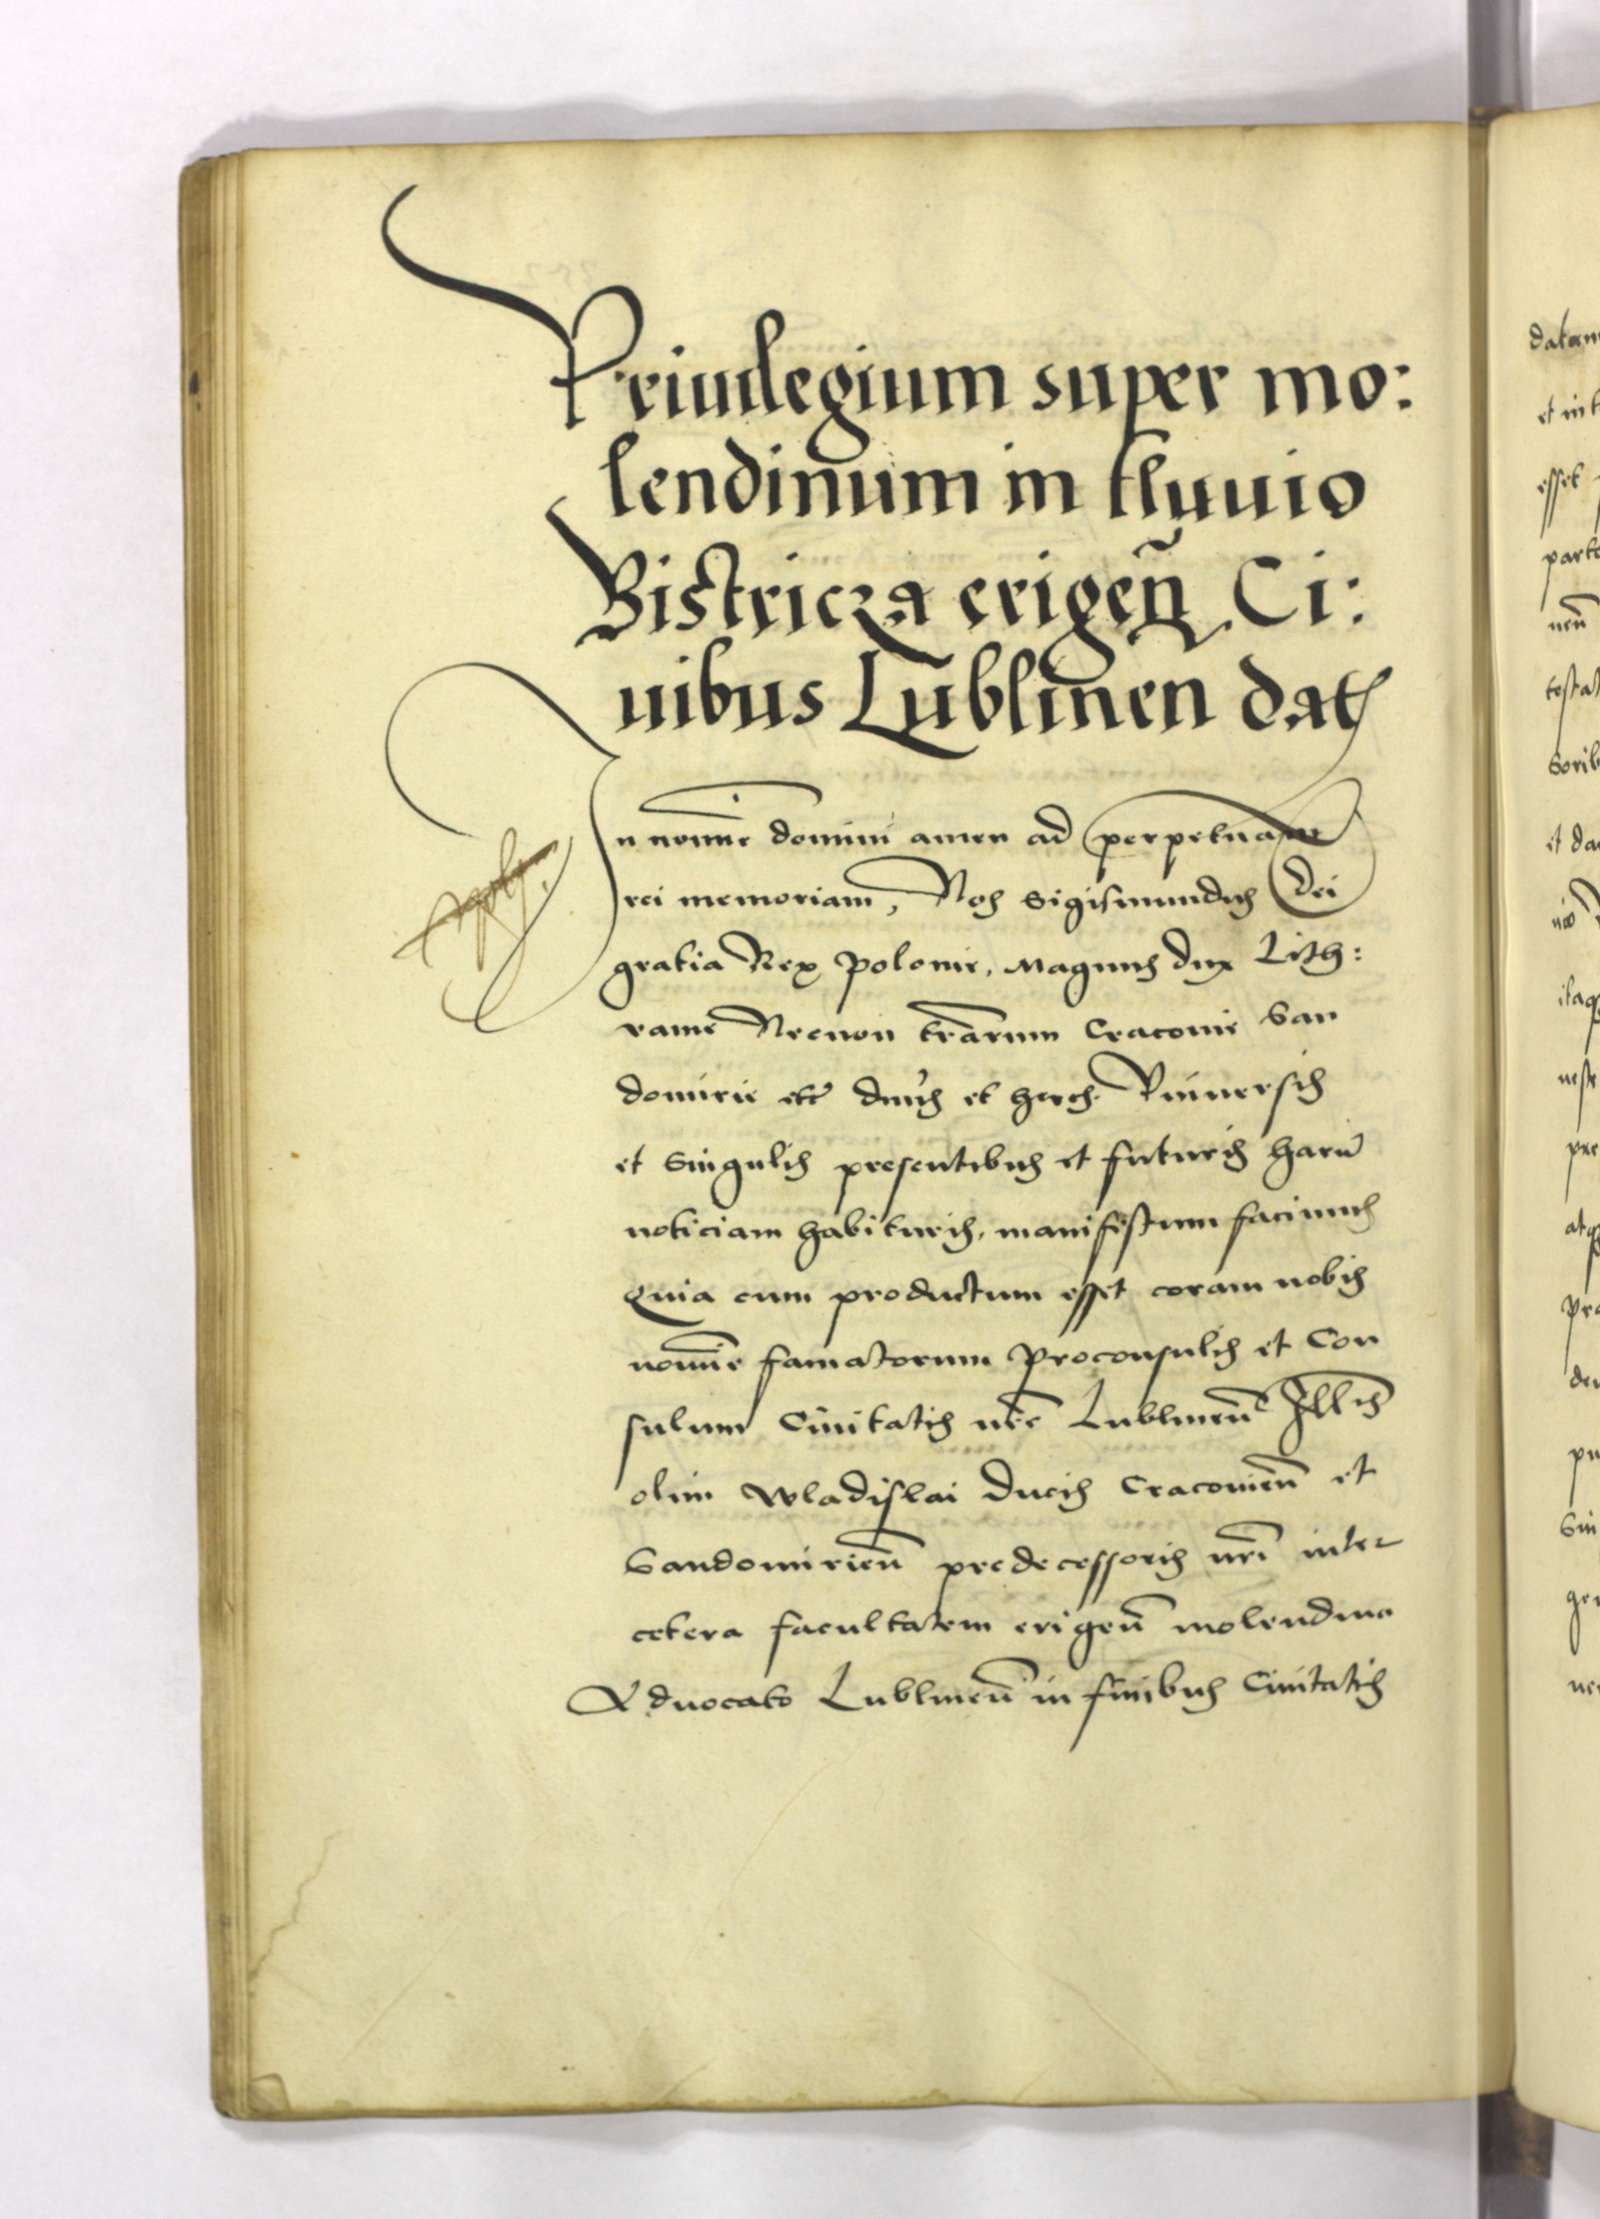 Priuilegium super mo:
lendinum in fluuio
Bistricza erigen̄ Ci:
uibus Lublinen dat
In nomine domini amen ad perpetuam
rei memoriam, Nos Sigismundus Dei
gratia Rex Polonie, Magnus dux Lith:
vanie Necnon trārum Cracovie San
domirie etc̄ dn̄us et heres. Vniuersis
et Singulis presentibus et futuris harū
noticiam habituris, manifestum facimus
Quia cum productum esset coram nobis
nomīe famatorum Proconsulis et Con
sulum Ciuitatis nr̄e Lublinen̄ Ill̄is
olim Wladislai Ducis Cracouien̄ et
Sandomirien̄ predecessoris nr̄i inter
cetera facultatem erigen̄ molendina
Aduocato Lublinen̄ in finibus Ciuitatis
datam
et in
esset
nen̄
et da